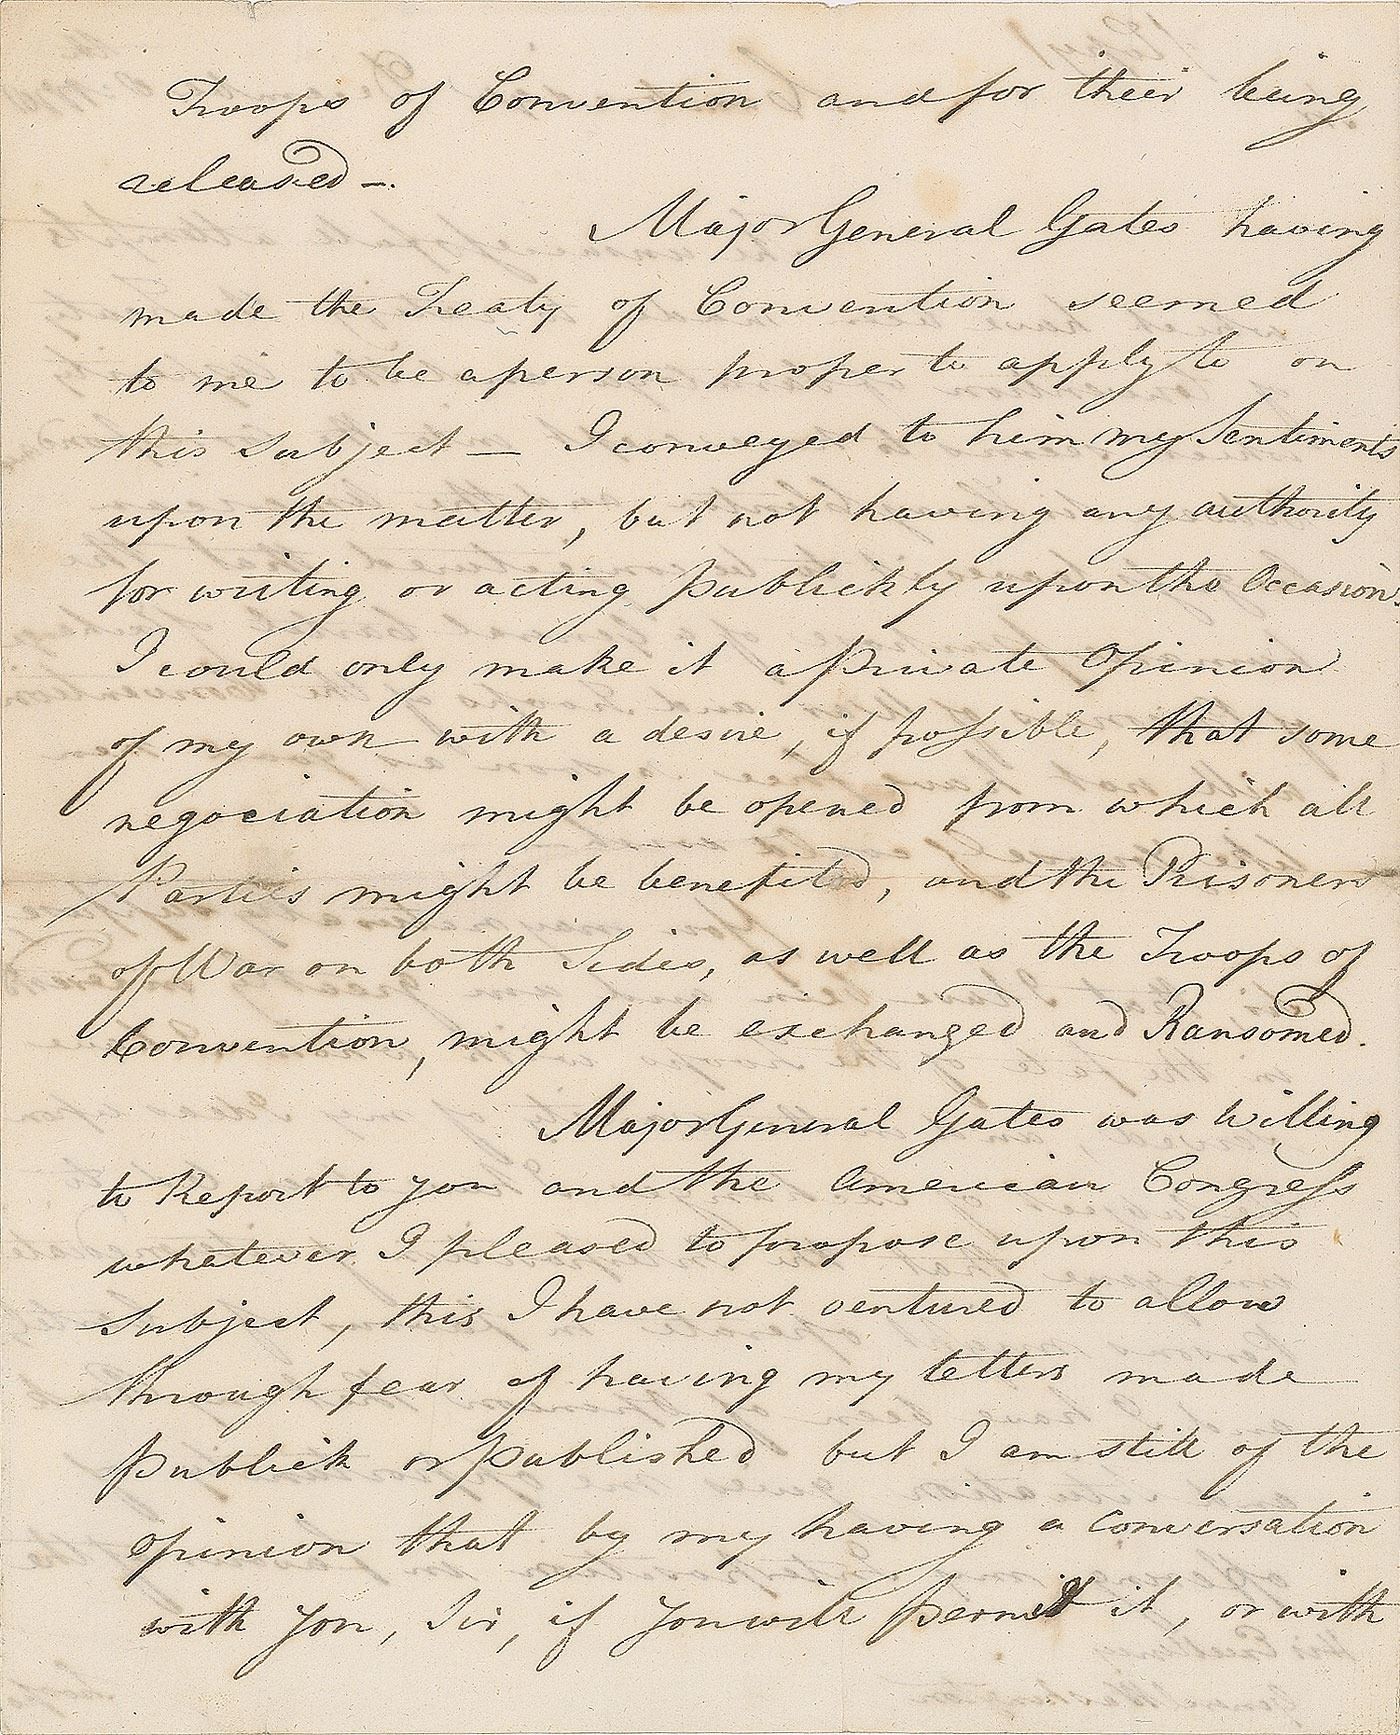 Troops of Convention and for their being
released —.
Major General Gates having
made the Treaty of Convention seemed
to me to be a person proper to apply to on
this Subject — I conveyed to him my Sentiments
upon the matter, but not having any authority
for writing or acting publickly upon the Occasion.
I could only make it a Private Opinion
of my own with a desire, if possible, that some
negociation might be opened from which all
Parties might be benefited, and the Prisoners
of War on both Sides, as well as the Troops of
Convention, might be exchanged and Ransomed.
Major General Gates was Willing
to Report to you and the American Congress
whatever I pleased to propose upon this
Subject, this I have not ventured to allow
through fear of having my letters made
publick or published but I am still of the
opinion that by my having a Conversation
with you, Sir, if you will permit it, or with